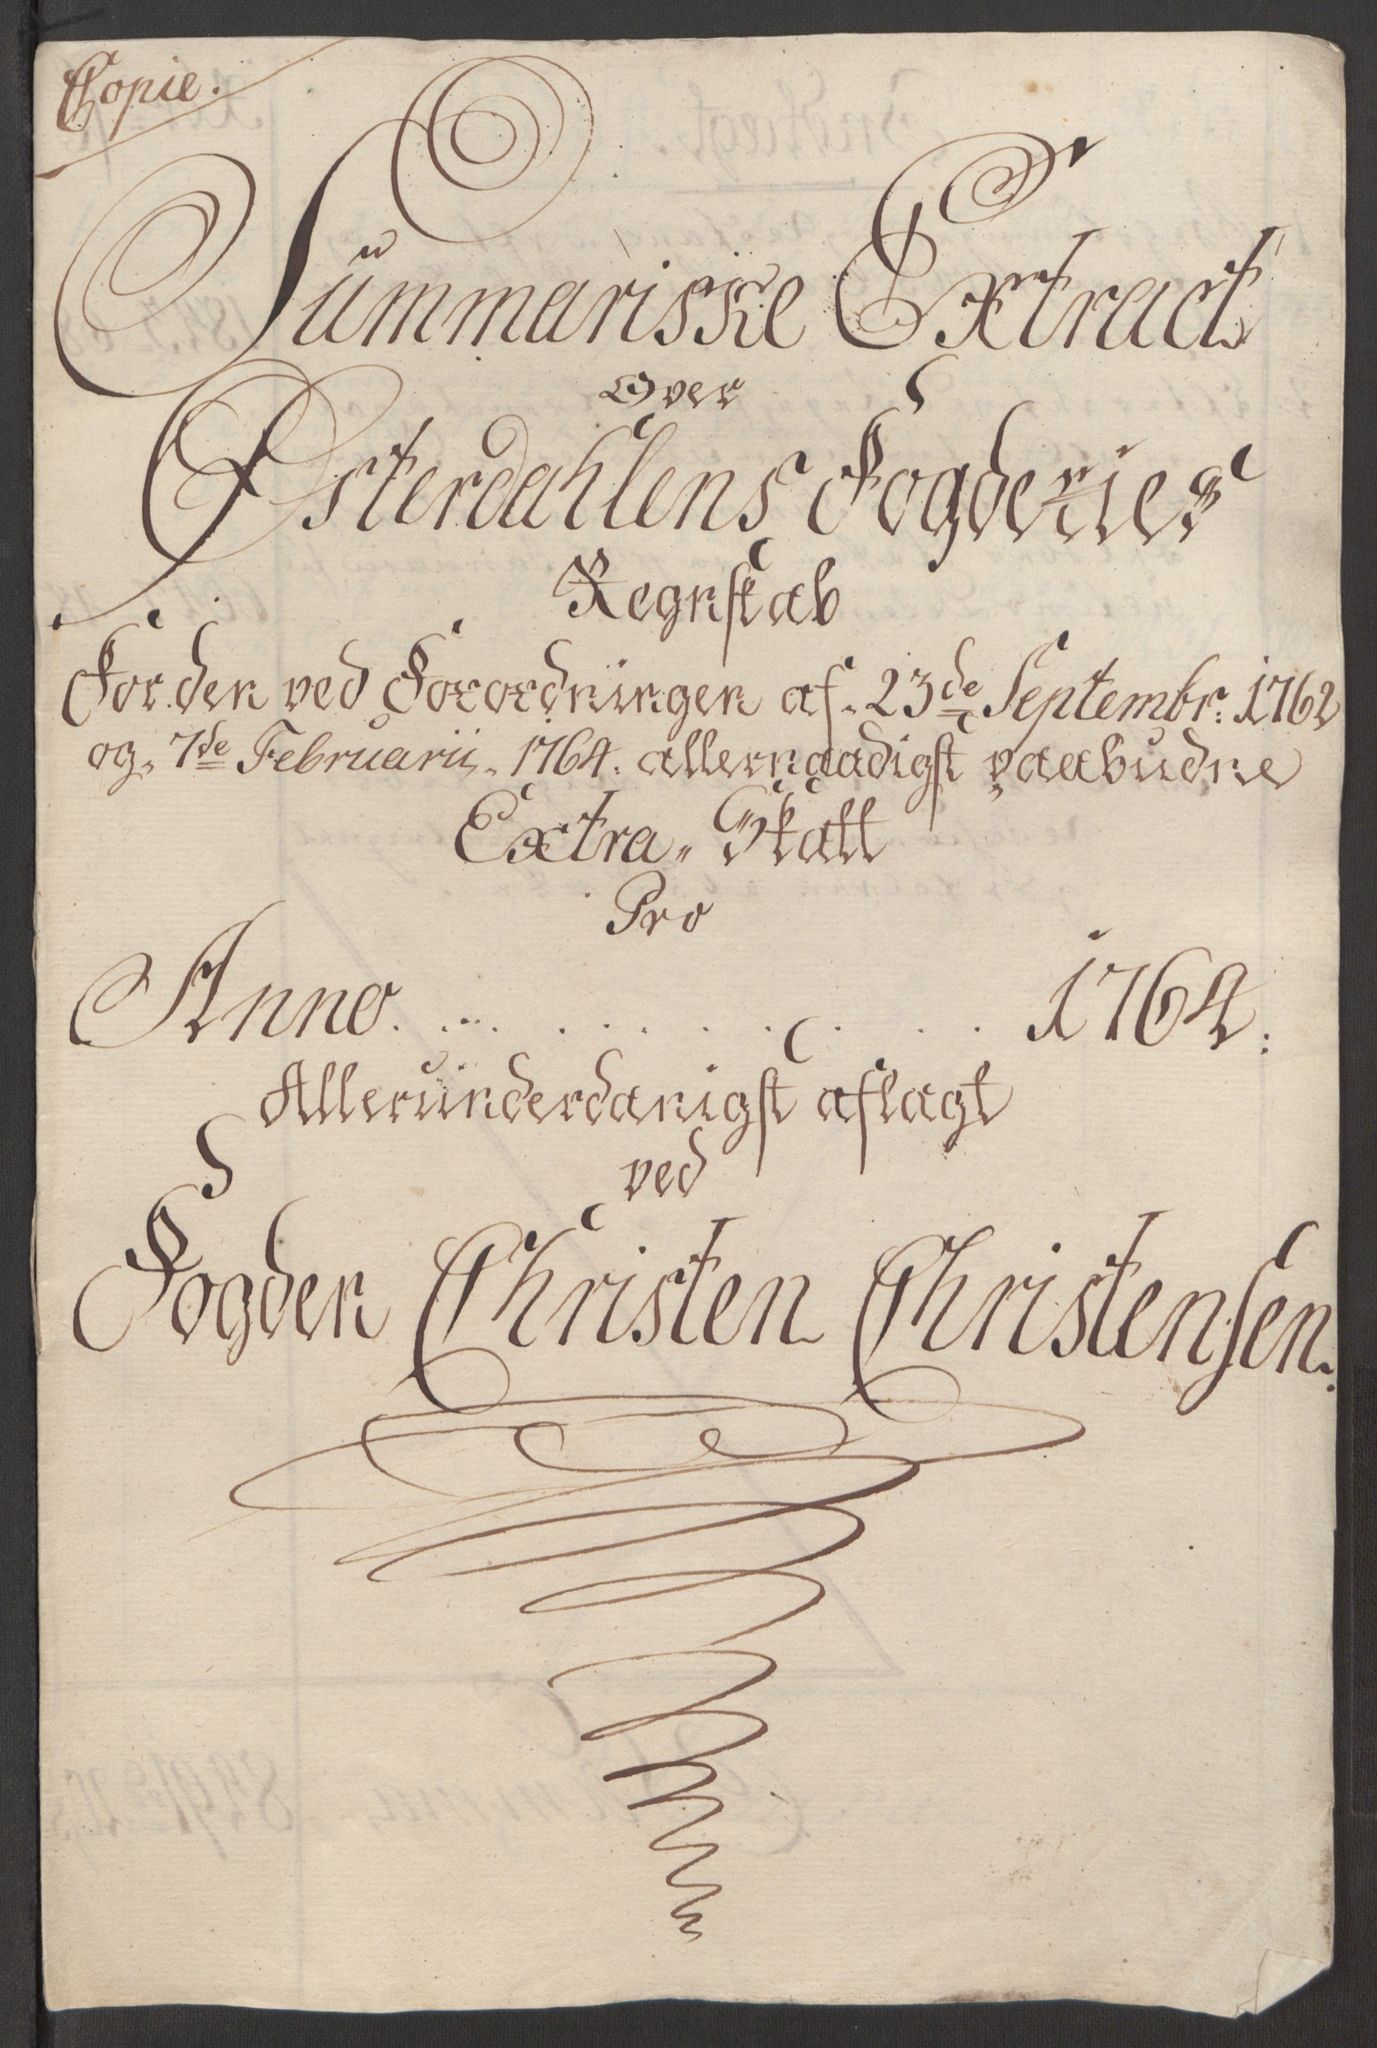 Copie.
Summariske Extract
Over
Østerdahlens Fogderies
Regnskab
For den ved Forordningen af 23de Septembr: 1762
og 7de Februarii 1764. allernaadigst paabudne
Extra-Skatt
Pro
Anno . . . . . . . . . . 1764.
Allerunderdanigst aflagt
ved
Fogden Christen Christensen.